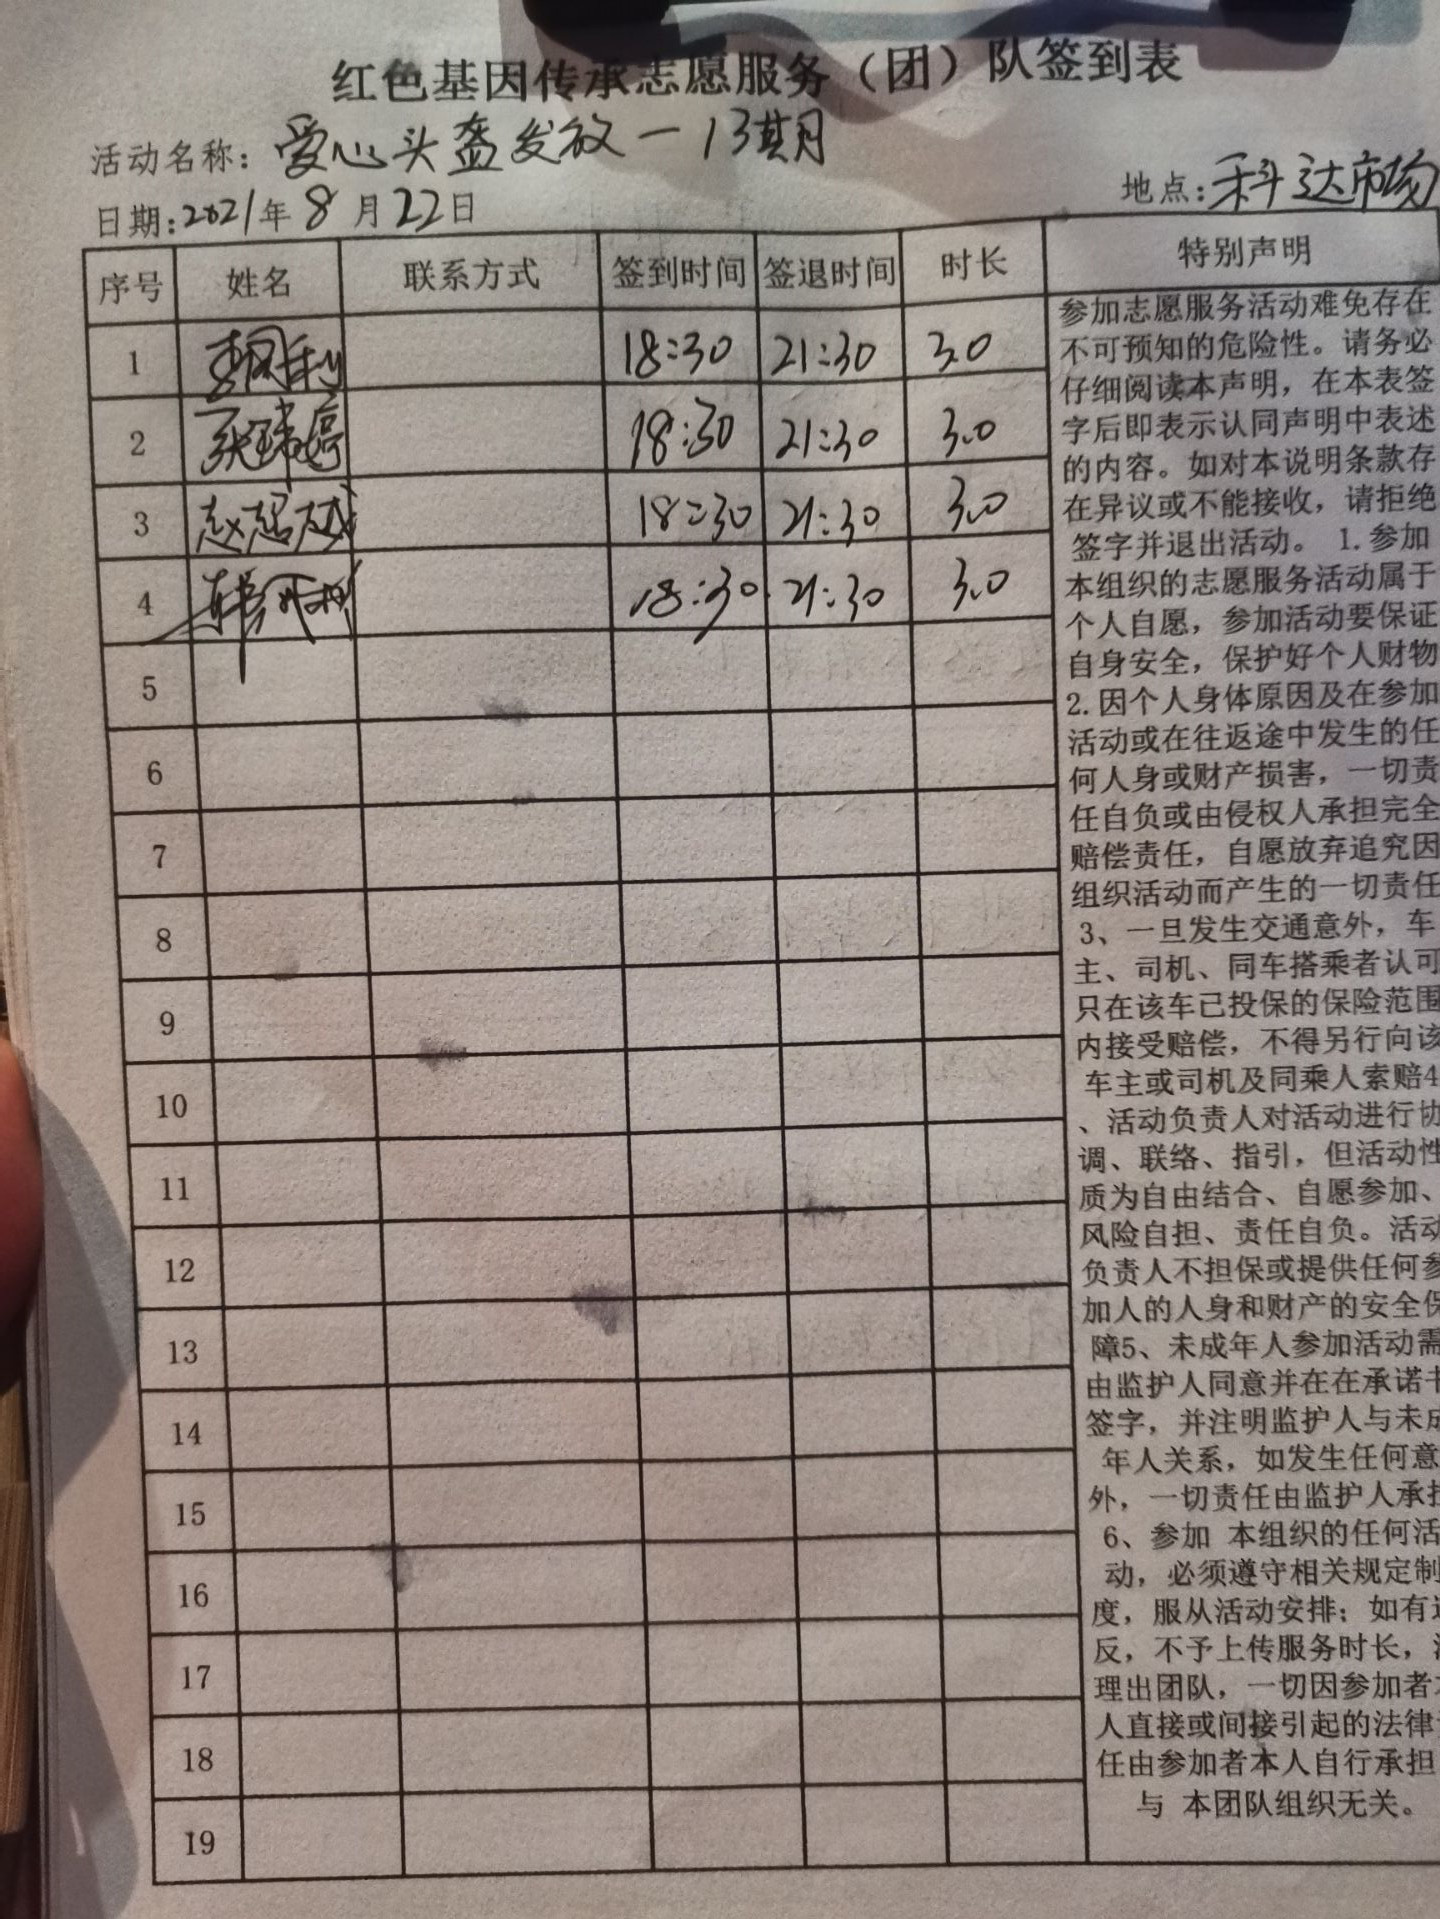 红色基因传承志愿服务（团）队签到表
活动名称：爱心头盔发放一13期
日期：2021年8月22日 地点：科达市场
序号 姓名 联系方式 签到时间 签退时间 时长 特别声明
1 18:30 21:30 3.0
2 18:30 21:30 3.0
3 18:30 21:30 3.0
4 18:30 21:30 3.0
5
6
7
8
9
10
11
12
13
14
15
16
17
18
19
参加志愿服务活动难免存在
不可预知的危险性。请务必
仔细阅读本声明，在本表签
字后即表示认同声明中表述
的内容。如对本说明条款存
在异议或不能接收，请拒绝
签字并退出活动。 1.参加
本组织的志愿服务活动属于
个人自愿，参加活动要保证
自身安全，保护好个人财物
2.因个人身体原因及在参加
活动或在往返途中发生的任
何人身或财产损害，一切责
任自负或由侵权人承担完全
赔偿责任，自愿放弃追究因
组织活动而产生的一切责任
3、一旦发生交通意外，车
主、司机、同车搭乘者认可
只在该车已投保的保险范围
内接受赔偿，不得另行向该
车主或司机及同乘人索赔4
、活动负责人对活动进行协
调、联络、指引，但活动性
质为自由结合、自愿参加、
风险自担、责任自负。活动
负责人不担保或提供任何参
加人的人身和财产的安全保
障5、未成年人参加活动需
由监护人同意并在在承诺书
签字，并注明监护人与未成
年人关系，如发生任何意
外，一切责任由监护人承担
6、参加 本组织的任何活
动，必须遵守相关规定制
度，服从活动安排；如有
反，不予上传服务时长，
理出团队，一切因参加者
人直接或间接引起的法律
任由参加者本人自行承担
与 本团队组织无关。